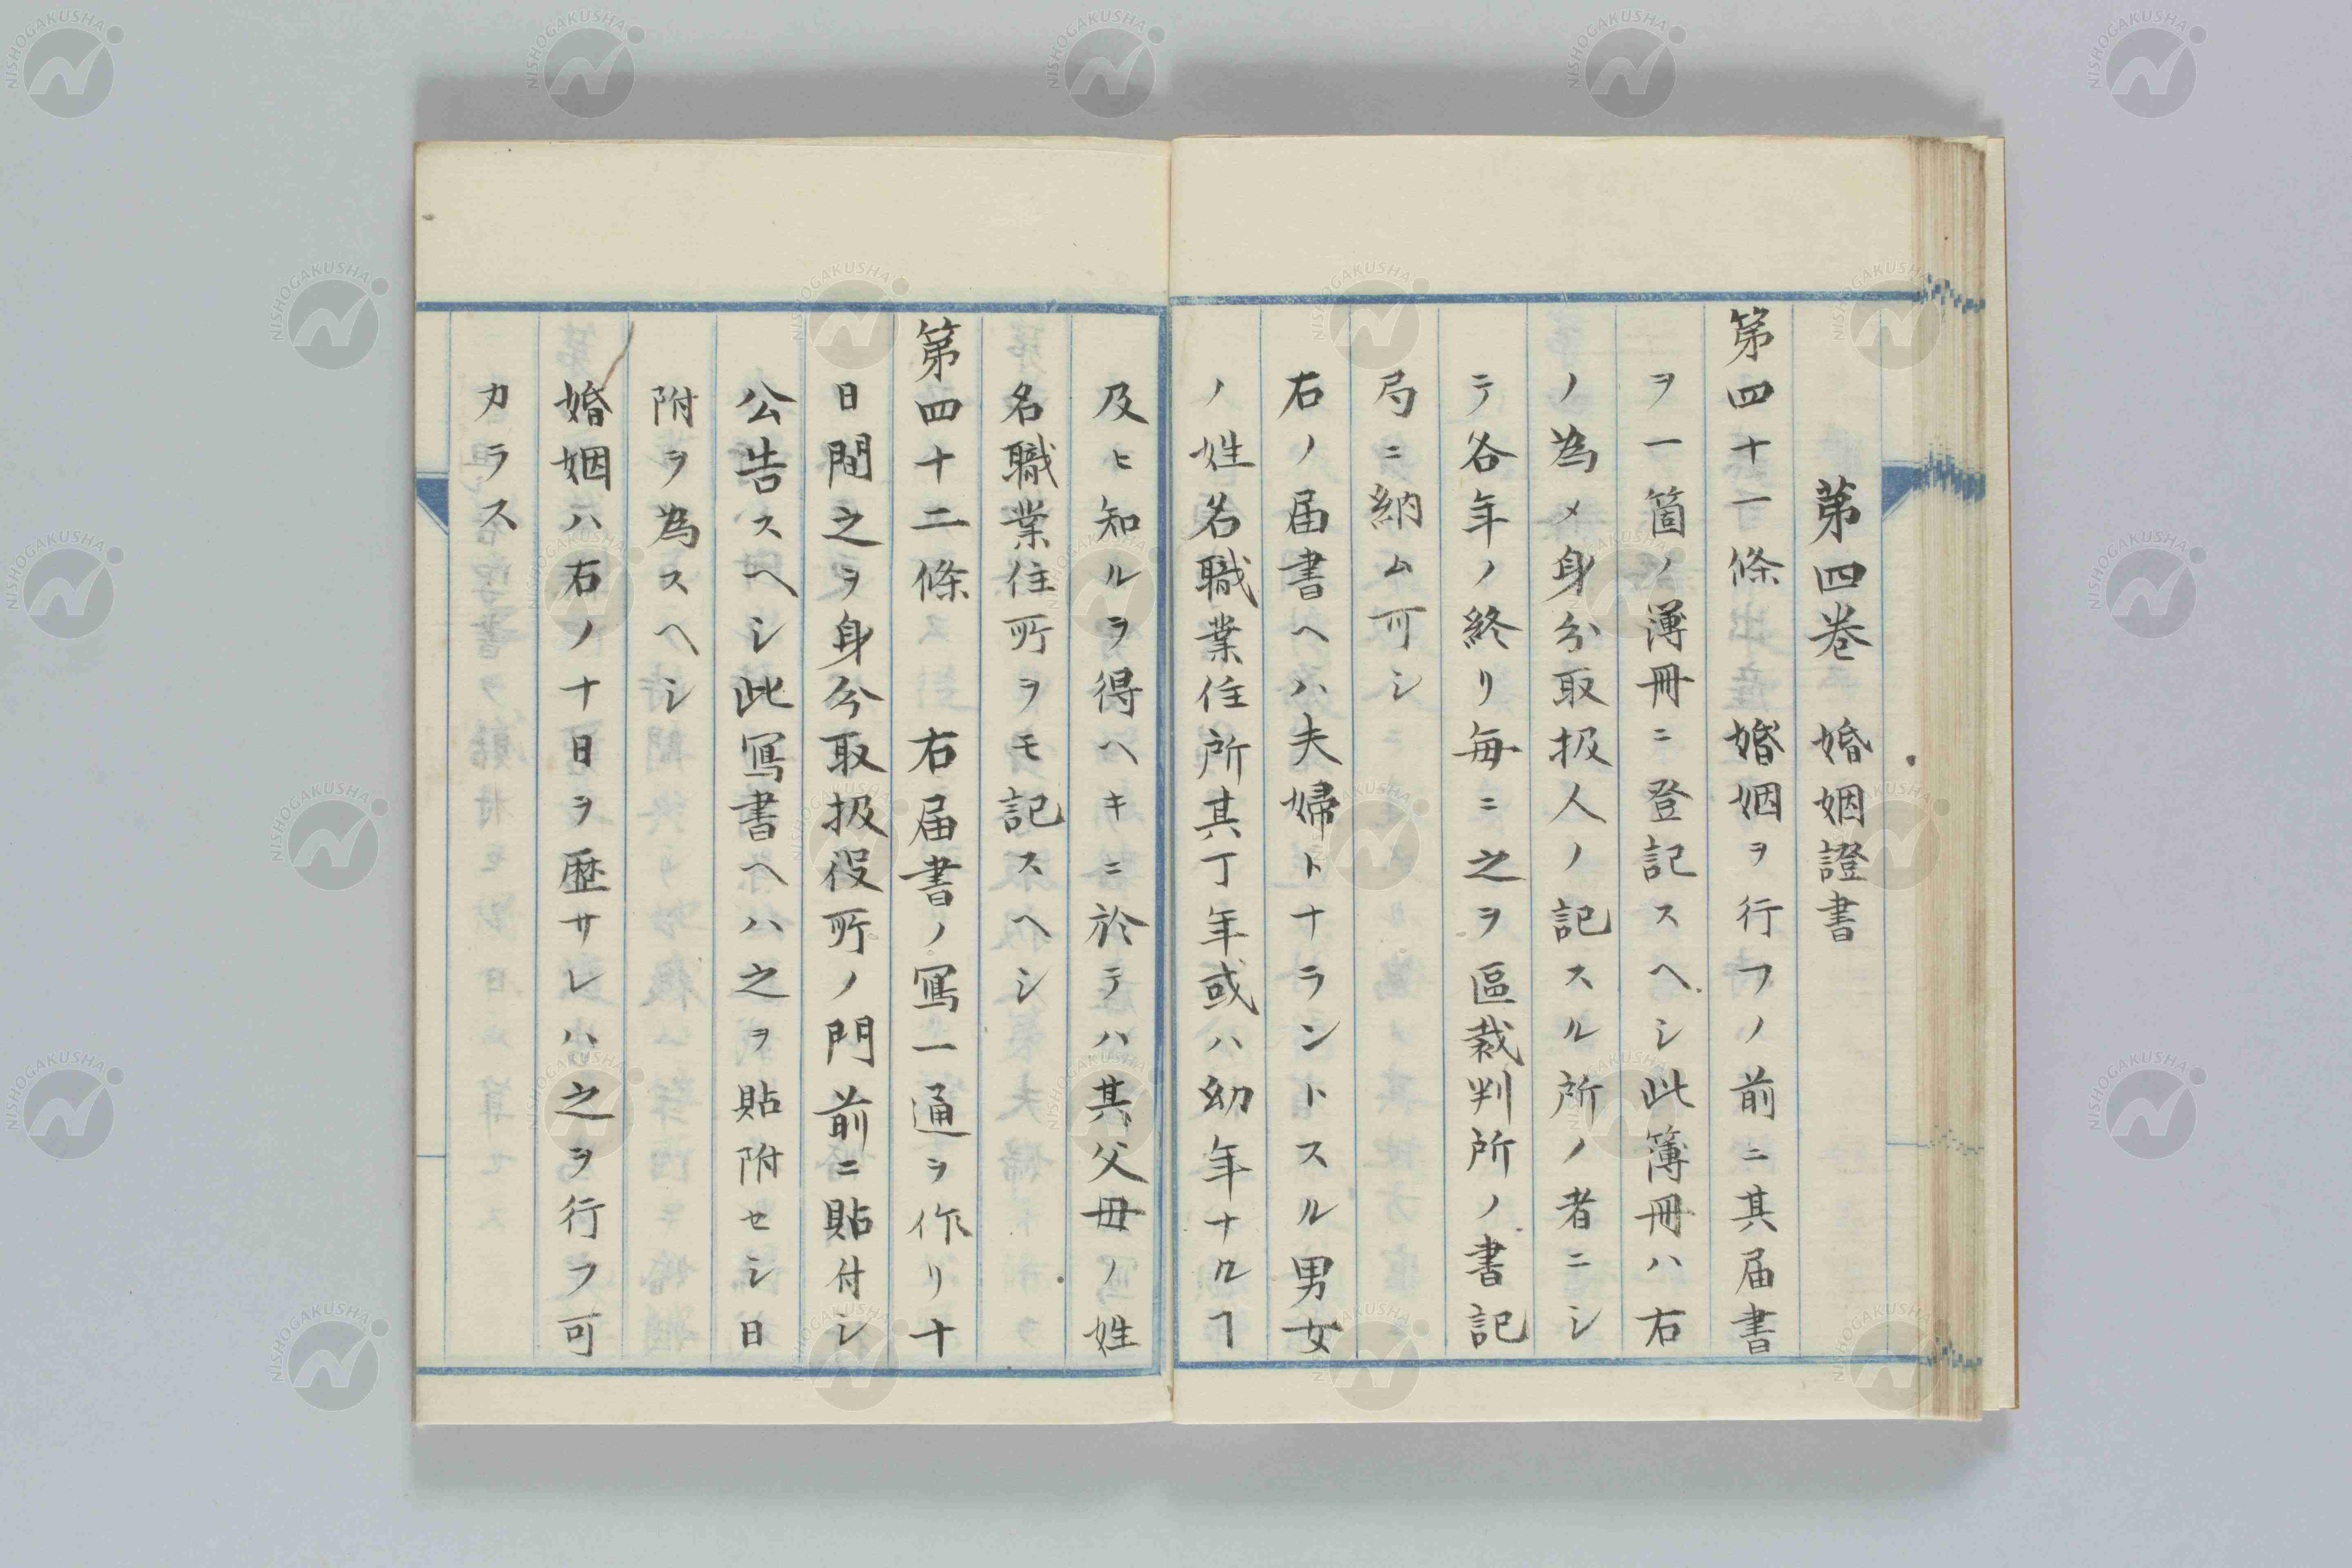 第四巻　婚姻證書
第四十一條　婚姻ヲ行フノ前ニ其届書
ヲ一箇ノ薄冊ニ登記スヘシ此簿冊ハ右
ノ為メ身分取扱人ノ記スル所ノ者ニシ
テ各年ノ終リ毎ニ之ヲ區裁判所ノ書記
局ニ納ム可シ
右ノ届書ヘハ夫婦トナラントスル男女
ノ姓名職業住所其丁年或ハ幼年ナルヿ
及ヒ知ルヲ得ヘキニ於テハ其父母ノ姓
名職業住所ヲモ記スヘシ
第四十二條　右届書ノ寫一通ヲ作リ十
日間之ヲ身分取扱役所ノ門前ニ貼付シ
公告スヘシ此寫書ヘハ之ヲ貼附セシ日
附ヲ為スヘシ
婚姻ハ右ノ十日ヲ歴サレハ之ヲ行フ可
カラス
NISHOGAKUSHA